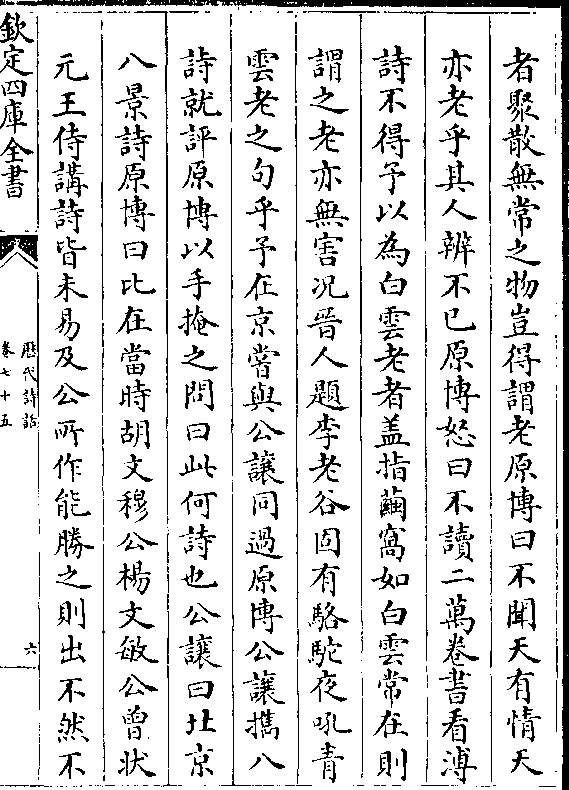 者聚散無常之物豈得謂老原博曰不聞天有情天
亦老乎其人辨不已原博怒曰不讀二萬卷書看溥
詩不得予以為白雲老者盖指繭窩如白雲常在則
謂之老亦無害况晉人題李老谷固有駱駝夜吼青
雲老之句乎予在京嘗與公讓同過原博公讓攜八
詩就評原博以手掩之問曰此何詩也公讓曰北京
八景詩原博曰比在當時胡文穆公楊文敏公曾狀
元王侍講詩皆未易及公所作能勝之則出不然不
欽定四庫全書
歷代詩話
卷七十五
六